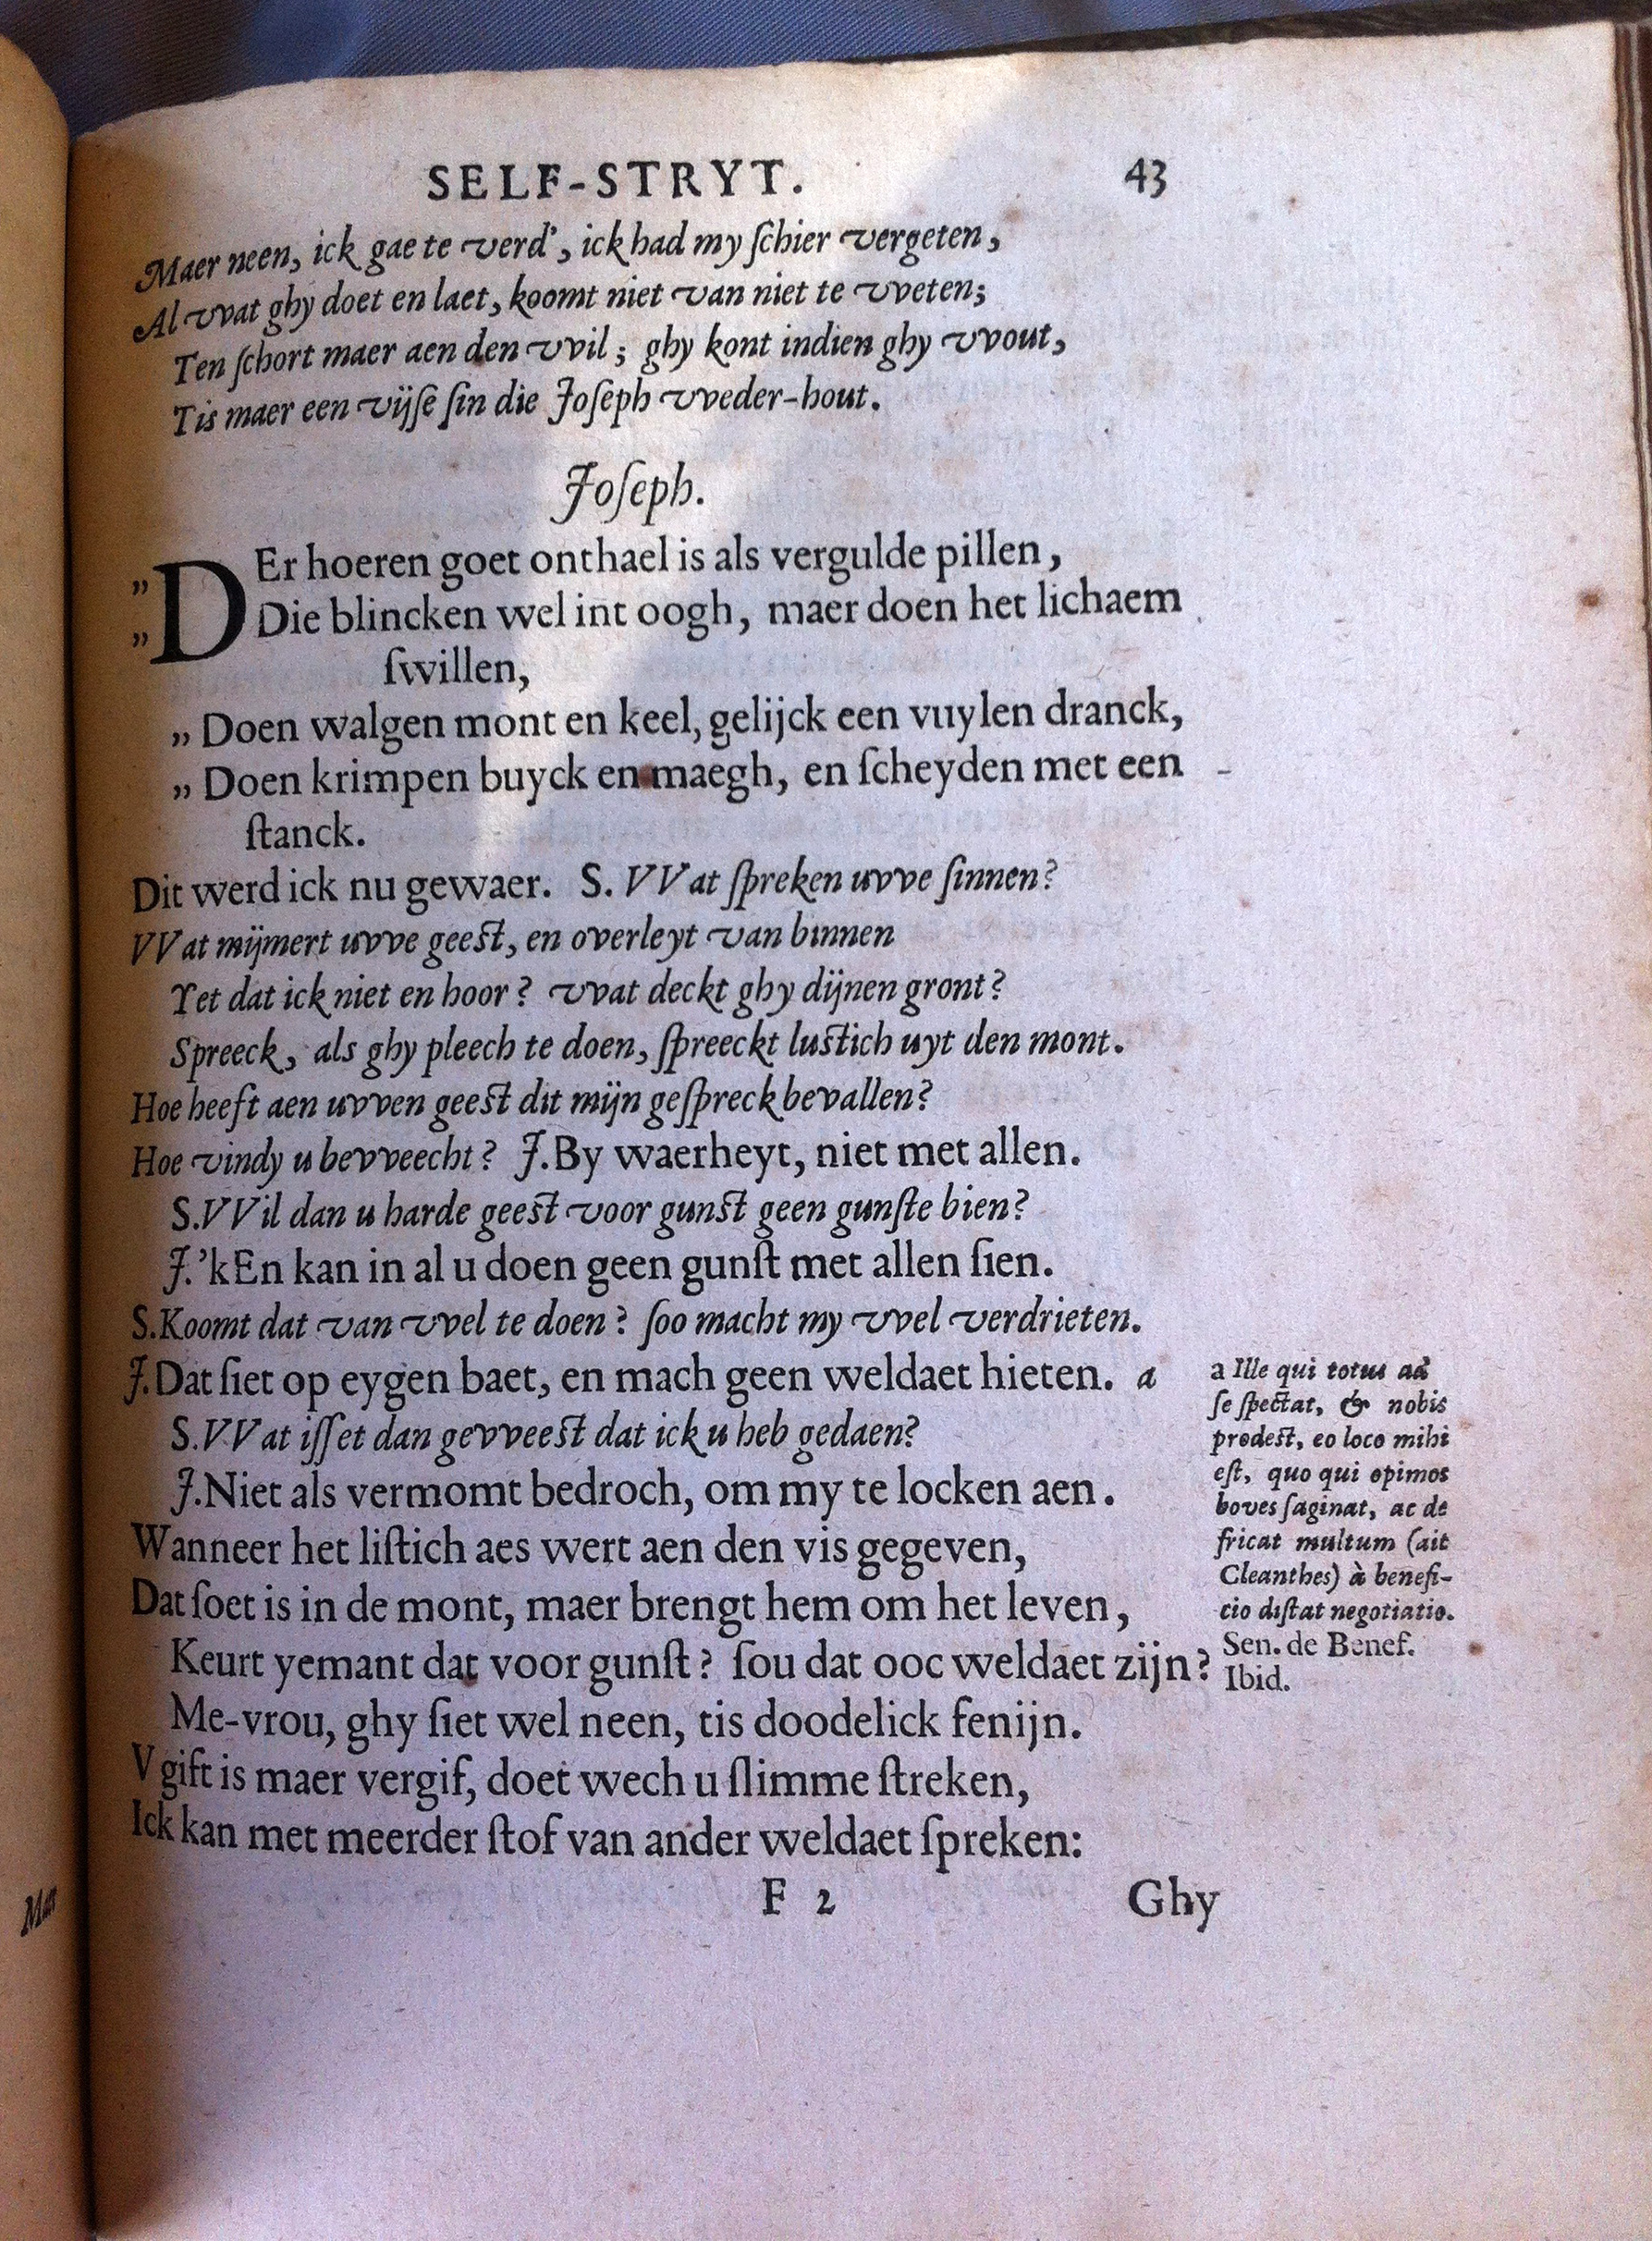 SELF-STRYT. 43
Maer neen, ick gae te verd', ick had my ſchier vergeten,
Al vvat ghy doet en laet, koomt niet van niet te vveten;
Ten ſchort maer aen den vvil; ghy kont indien ghy vvout,
Tis maer een vijſe ſin die Joſeph vveder-hout.
Joſeph.
„DEr hoeren goet onthael is als vergulde pillen,
„Die blincken wel int oogh, maer doen het lichaem
ſwillen,
„Doen walgen mont en keel, gelijck een vuylen dranck,
„Doen krimpen buyck en maegh, en ſcheyden met een
ſtanck.
Dit werd ick nu gewaer. S. VVat ſpreken uvve ſinnen?
VVat mijmert uvve geeſt, en overleyt van binnen
Yet dat ick niet en hoor? vvat deckt ghy dijnen gront?
Spreeck, als ghy pleech te doen, ſpreeckt luſtich uyt den mont.
Hoe heeft aen uvven geeſt dit mijn geſpreck bevallen?
Hoe vindy u bevveecht? J. By waerheyt, niet met allen.
S. VVil dan u harde geeſt voor gunſt geen gunſte bien?
J. 'kEn kan in al u doen geen gunſt met allen ſien.
S. Koomt dat van vvel te doen? ſoo macht my vvel verdrieten.
J. Dat ſiet op eygen baet, en mach geen weldaet hieten. a
S. VVat iſſet dan gevveeſt dat ick u heb gedaen?
J. Niet als vermomt bedroch, om my te locken aen.
Wanneer het liſtich aes wert aen den vis gegeven,
Dat ſoet is in de mont, maer brengt hem om het leven,
Keurt yemant dat voor gunſt? ſou dat ooc weldaet zijn?
Me-vrou, ghy ſiet wel neen, tis doodelick fenijn.
V gift is maer vergif, doet wech u ſlimme ſtreken,
Ick kan met meerder ſtof van ander weldaet ſpreken:
F 2 Ghy
a Ille qui totus ad
ſe ſpectat, & nobis
prodeſt, eo loco mihi
eſt, quo qui opimos
boves ſaginat, ac de
fricat multum (ait
Cleanthes) à benefi-
cio diſtat negotiatio.
Sen. de Benef.
Ibid.